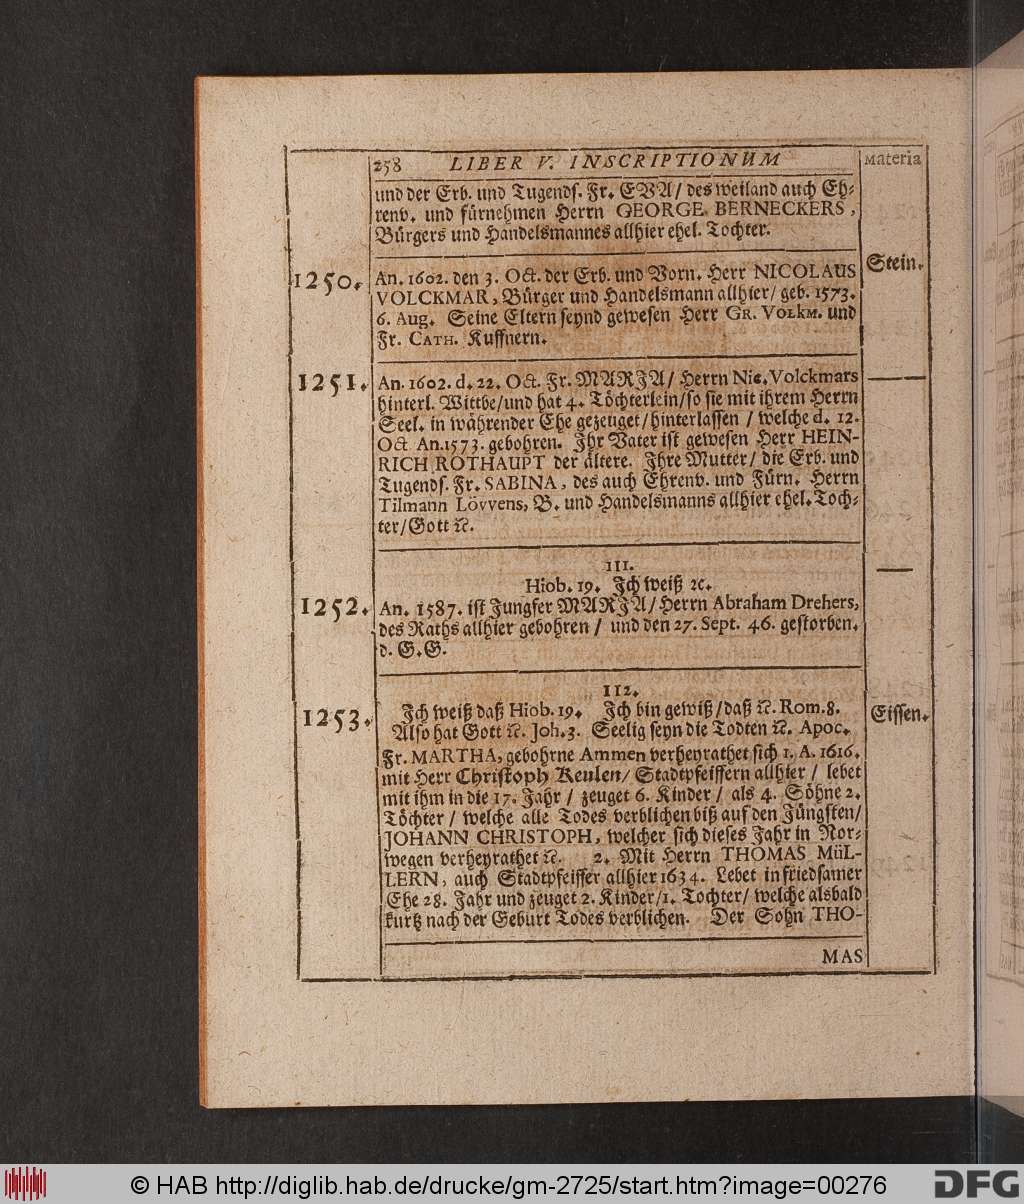 258 LIBER V. INSCRIPTIONUM Materia
und der Erb. und Tugends. Fr. EVA/ des weiland auch Eh-
renv. und fürnehmen Herrn GEORGE BERNECKERS,
Bürgers und Handelsmannes allhier ehel. Tochter.
1250. An. 1602. den 3. Oct. der Erb. und Vorn. Herr NICOLAUS Stein.
VOLCKMAR, Bürger und Handelsmann allhier/ geb. 1573.
6. Aug. Seine Eltern seynd gewesen Herr GR. VOLKM. und
Fr. CATH. Kuffnern.
1251. An. 1602. d. 22. Oct. Fr. MARJA/ Herrn Nic. Volckmars —
hinterl. Wittbe/und hat 4. Töchterlein/so sie mit ihrem Herrn
Seel. in währender Ehe gezeuget/hinterlassen / welche d. 12.
Oct An.1573. gebohren. Jhr Vater ist gewesen Herr HEIN-
RICH ROTHAUPT der ältere. Jhre Mutter/ die Erb. und
Tugends. Fr. SABINA, des auch Ehrenv. und Fürn. Herrn
Tilmann Lövvens, B. und Handelsmanns allhier ehel. Toch-
ter/Gott ꝛc.
111. —
Hiob. 19. Jch weiß ꝛc.
1252. An. 1587. ist Jungfer MARJA/ Herrn Abraham Drehers,
des Raths allhier gebohren / und den 27. Sept. 46. gestorben.
d. G.G.
112.
1253. Jch weiß daß Hiob. 19. Jch bin gewiß/daß ꝛc. Rom. 8. Eissen.
Also hat Gott ꝛc. Joh. 3. Seelig seyn die Todten ꝛc. Apoc.
Fr. MARTHA, gebohrne Ammen verheyrathet sich 1. A. 1616.
mit Herr Christoph Keulen/ Stadtpfeiffern allhier / lebet
mit ihm in die 17. Jahr / zeuget 6. Kinder / als 4. Söhne 2.
Töchter / welche alle Todes verblichen biß auf den Jüngsten/
JOHANN CHRISTOPH, welcher sich dieses Jahr in Nor-
wegen verheyrathet ꝛc. 2. Mit Herrn THOMAS MüL-
LERN, auch Stadtpfeiffer allhier 1634. Lebet in friedsamer
Ehe 28. Jahr und zeuget 2. Kinder/1. Tochter/ welche alsbald
kurtz nach der Geburt Todes verblichen. Der Sohn THO-
MAS
© HAB http://diglib.hab.de/drucke/gm-2725/start.htm?image=00276
DFG